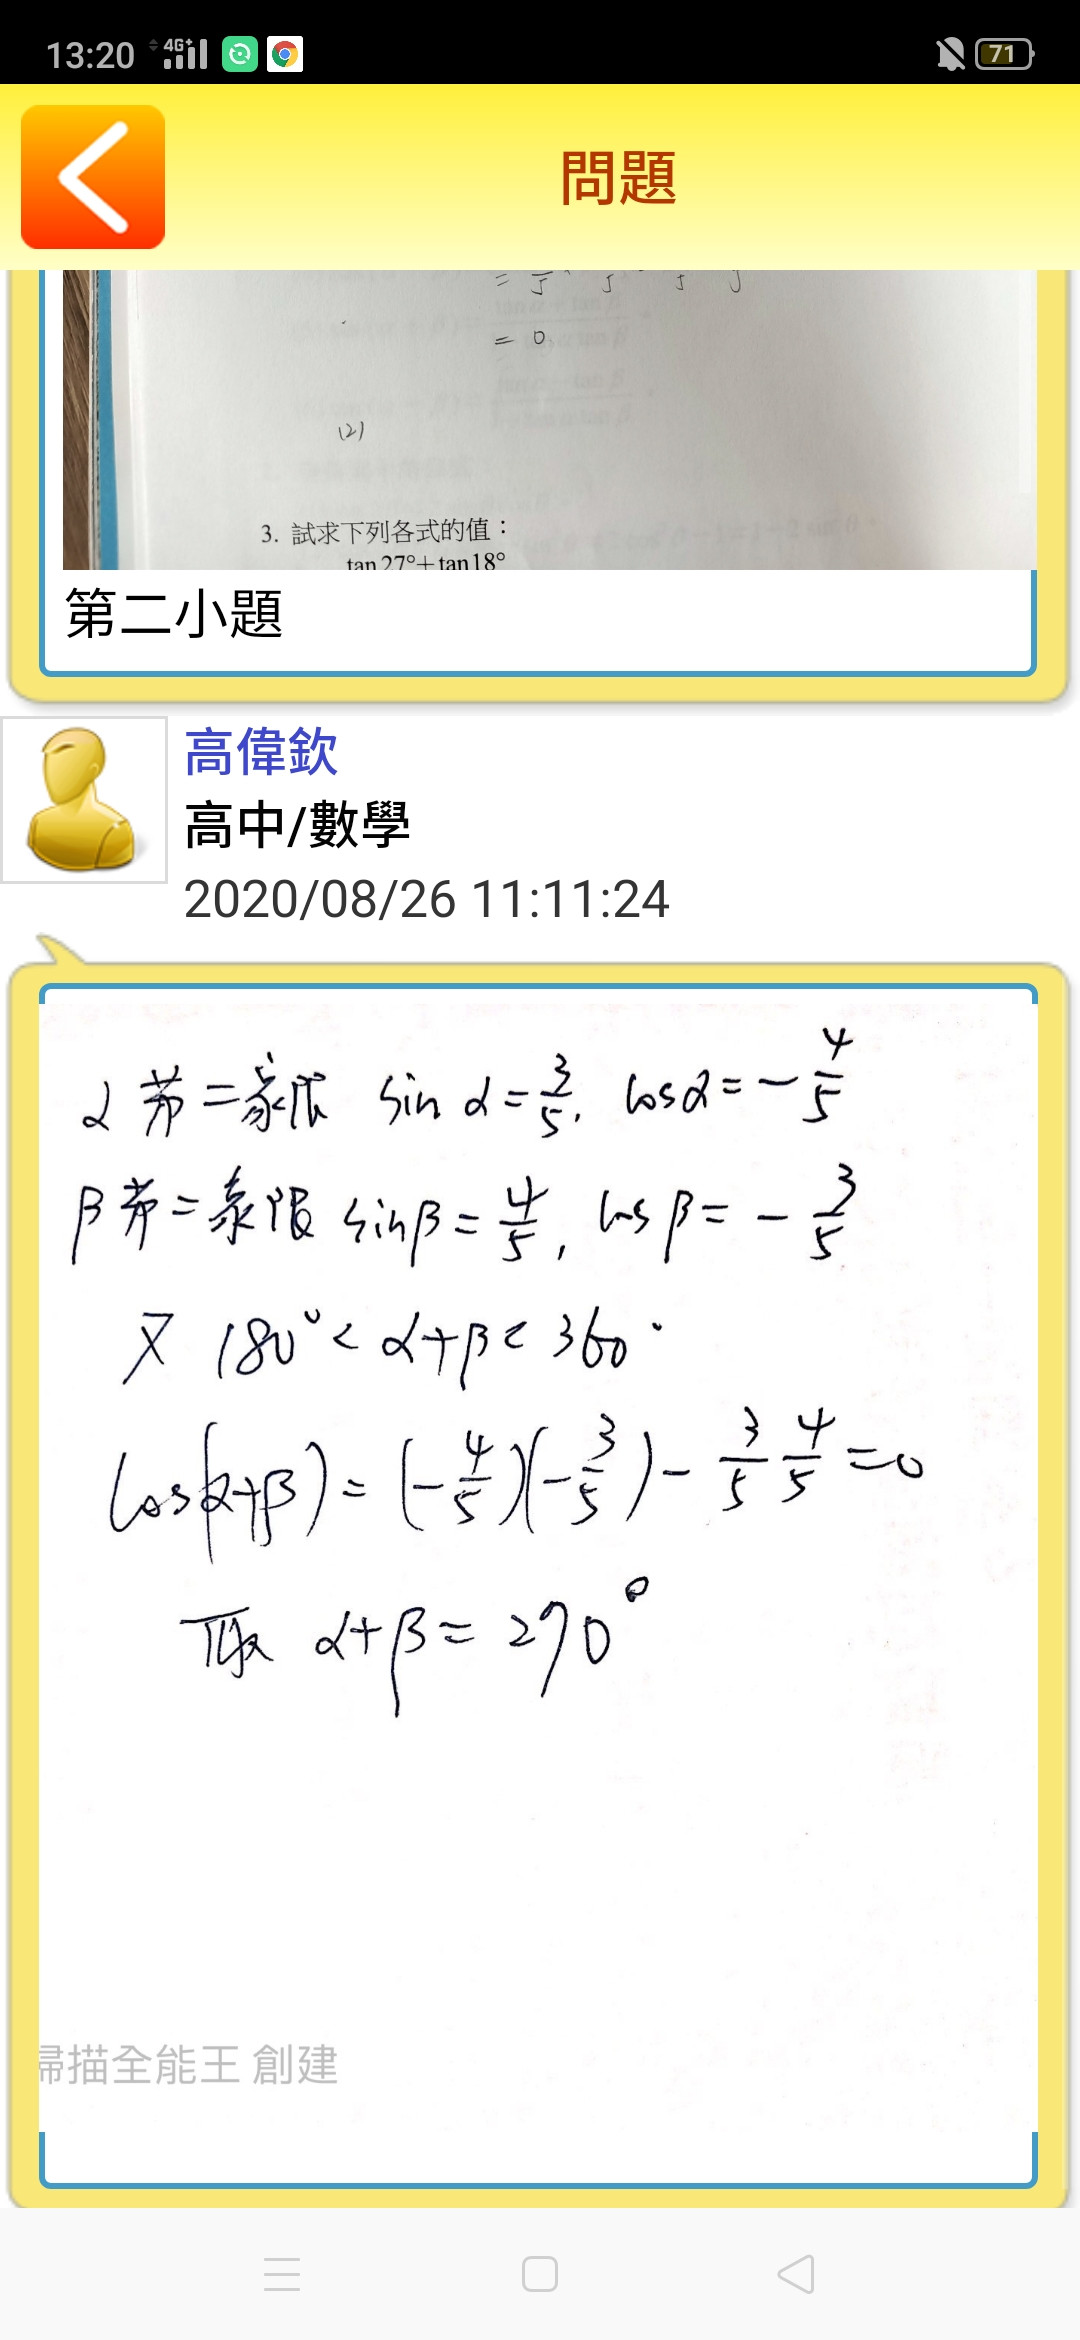 13:20 4G+ 71
問題
= 0
(2)
3. 試求下列各式的值：
tan 27°+tan 18°
第二小題
高偉欽
高中/數學
2020/08/26 11:11:24
α 第二象限 sin α = 3/5, cos α = - 4/5
β 第二象限 sin β = 4/5, cos β = - 3/5
又 180° < α+β < 360°
cos(α+β) = (-4/5)(-3/5) - 3/5 4/5 = 0
取 α+β = 270°
掃描全能王 創建